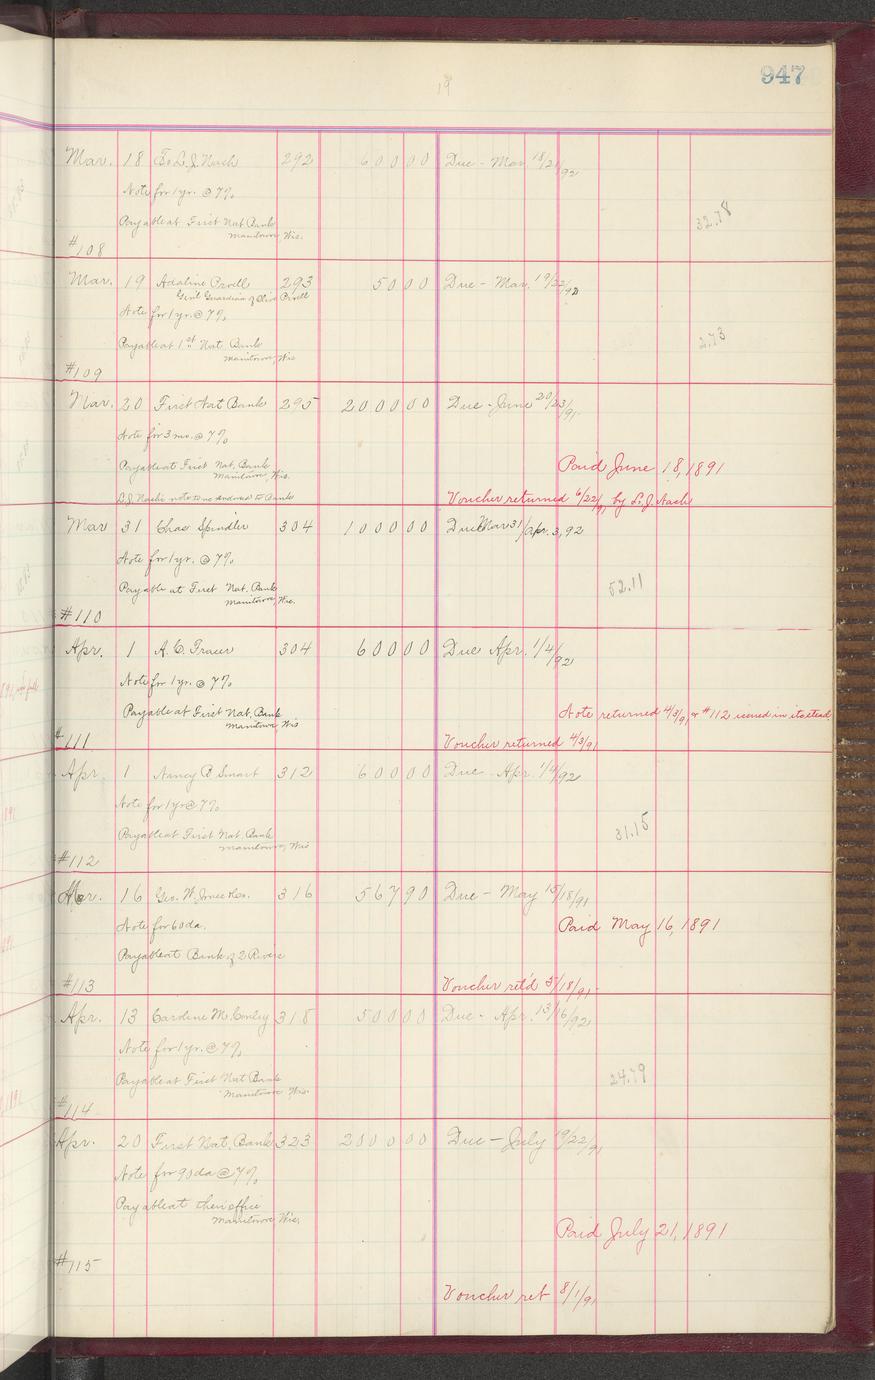 947
19
Mar. 18 To L. J. Nash 292 600 00 Due - Mar. 18/21/92
Note for 1 yr. @ 7%
Payable at First Nat. Bank
Manitowoc, Wis.
32.78
#108
Mar. 19 Adaline 293 50 00 Due - Mar. 19/22/92
Gen'l Guardian of
Note for 1 yr. @ 7%
Payable at 1st Nat. Bank
Manitowoc, Wis
2.73
#109
Mar. 20 First Nat Bank 295 2000 00 Due - June 20/23/91
Note for 3 mo. @ 7%
Payable at First Nat. Bank
Manitowoc, Wis.
Paid June 18, 1891
L. J. Nash's note to us endorsed to Bank
Voucher returned 6/22/91 by L. J. Nash
Mar 31 Chas Spindler 304 1000 00 Due Mar 31/Apr. 3, 92
Note for 1 yr. @ 7%
Payable at First Nat. Bank
Manitowoc, Wis.
52.11
#110
Apr. 1 A. C. 304 600 00 Due Apr. 1/4/92
Note for 1 yr. @ 7%
Payable at First Nat. Bank
Manitowoc, Wis
Note returned 4/3/91 & #112 issued in its stead
#111
Voucher returned 4/3/91
Apr. 1 Nancy B. Smart 312 600 00 Due - Apr. 1/4/92
Note for 1 yr @ 7%
Payable at First Nat. Bank
Manitowoc, Wis
31.15
#112
Apr. 16 Geo. W. Jones 316 567 90 Due - May 15/18/91
Note for 60 da.
Paid May 16, 1891
Payable at Bank of 2 Rivers
#113
Voucher ret'd 5/18/91
Apr. 13 Caroline M. Conley 318 500 00 Due - Apr. 13/16/92
Note for 1 yr. @ 7%
Payable at First Nat Bank
Manitowoc Wis
24.79
#114
Apr. 20 First Nat. Bank 323 2000 00 Due - July 19/22/91
Note for 90 da @ 7%
Payable at their office
Manitowoc Wis.
Paid July 21, 1891
#115
Voucher ret 8/1/91